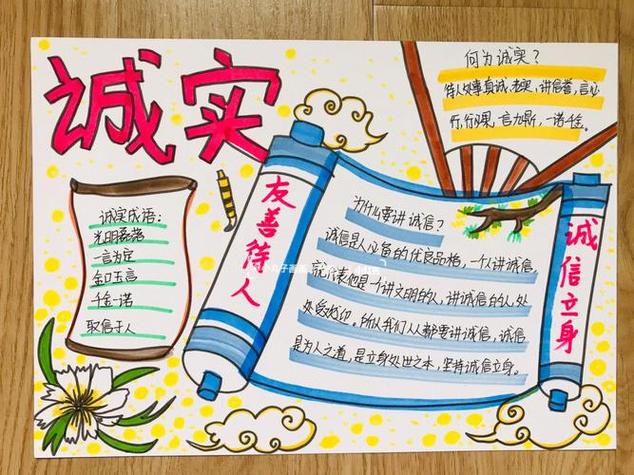 诚实
何为诚实？
待人处事真诚、老实、讲信誉，言必
行、行必果，言九鼎，一诺千金。
诚实成语：
光明磊落
一言为定
金口玉言
千金一诺
取信于人
友善待人
为什么要讲诚信？
诚信是人必备的优良品格，一个人讲诚信，
就代表他是个讲文明的人，讲诚信的人，处
处受欢迎。所以我们人人都要讲诚信，诚信
是为人之道，是立身处世之本，坚持诚信立身。
诚信立身